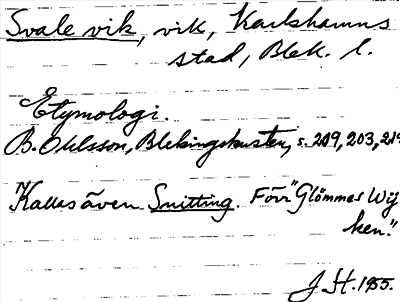 Svale vik, vik, Karlshamns
stad, Blek. l.
Etymologi.
B. Ohlsson, Blekingskusten, s. 209, 203, 219
Kallas även Snitting. Förr "Glömmes Wij
ken."
J. H. 1955.